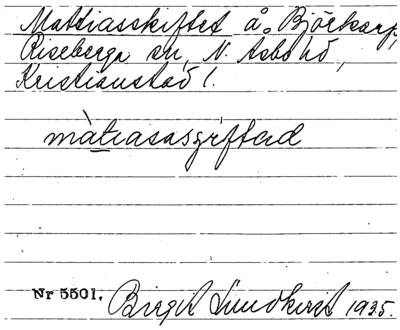 Mattiasskiftet å. Björkarp,
Riseberga sn, N. Åsbo hd,
Kristianstad l.
màtiasasʒiftəd
Nr 5501. Birgit Lundkvist 1935.